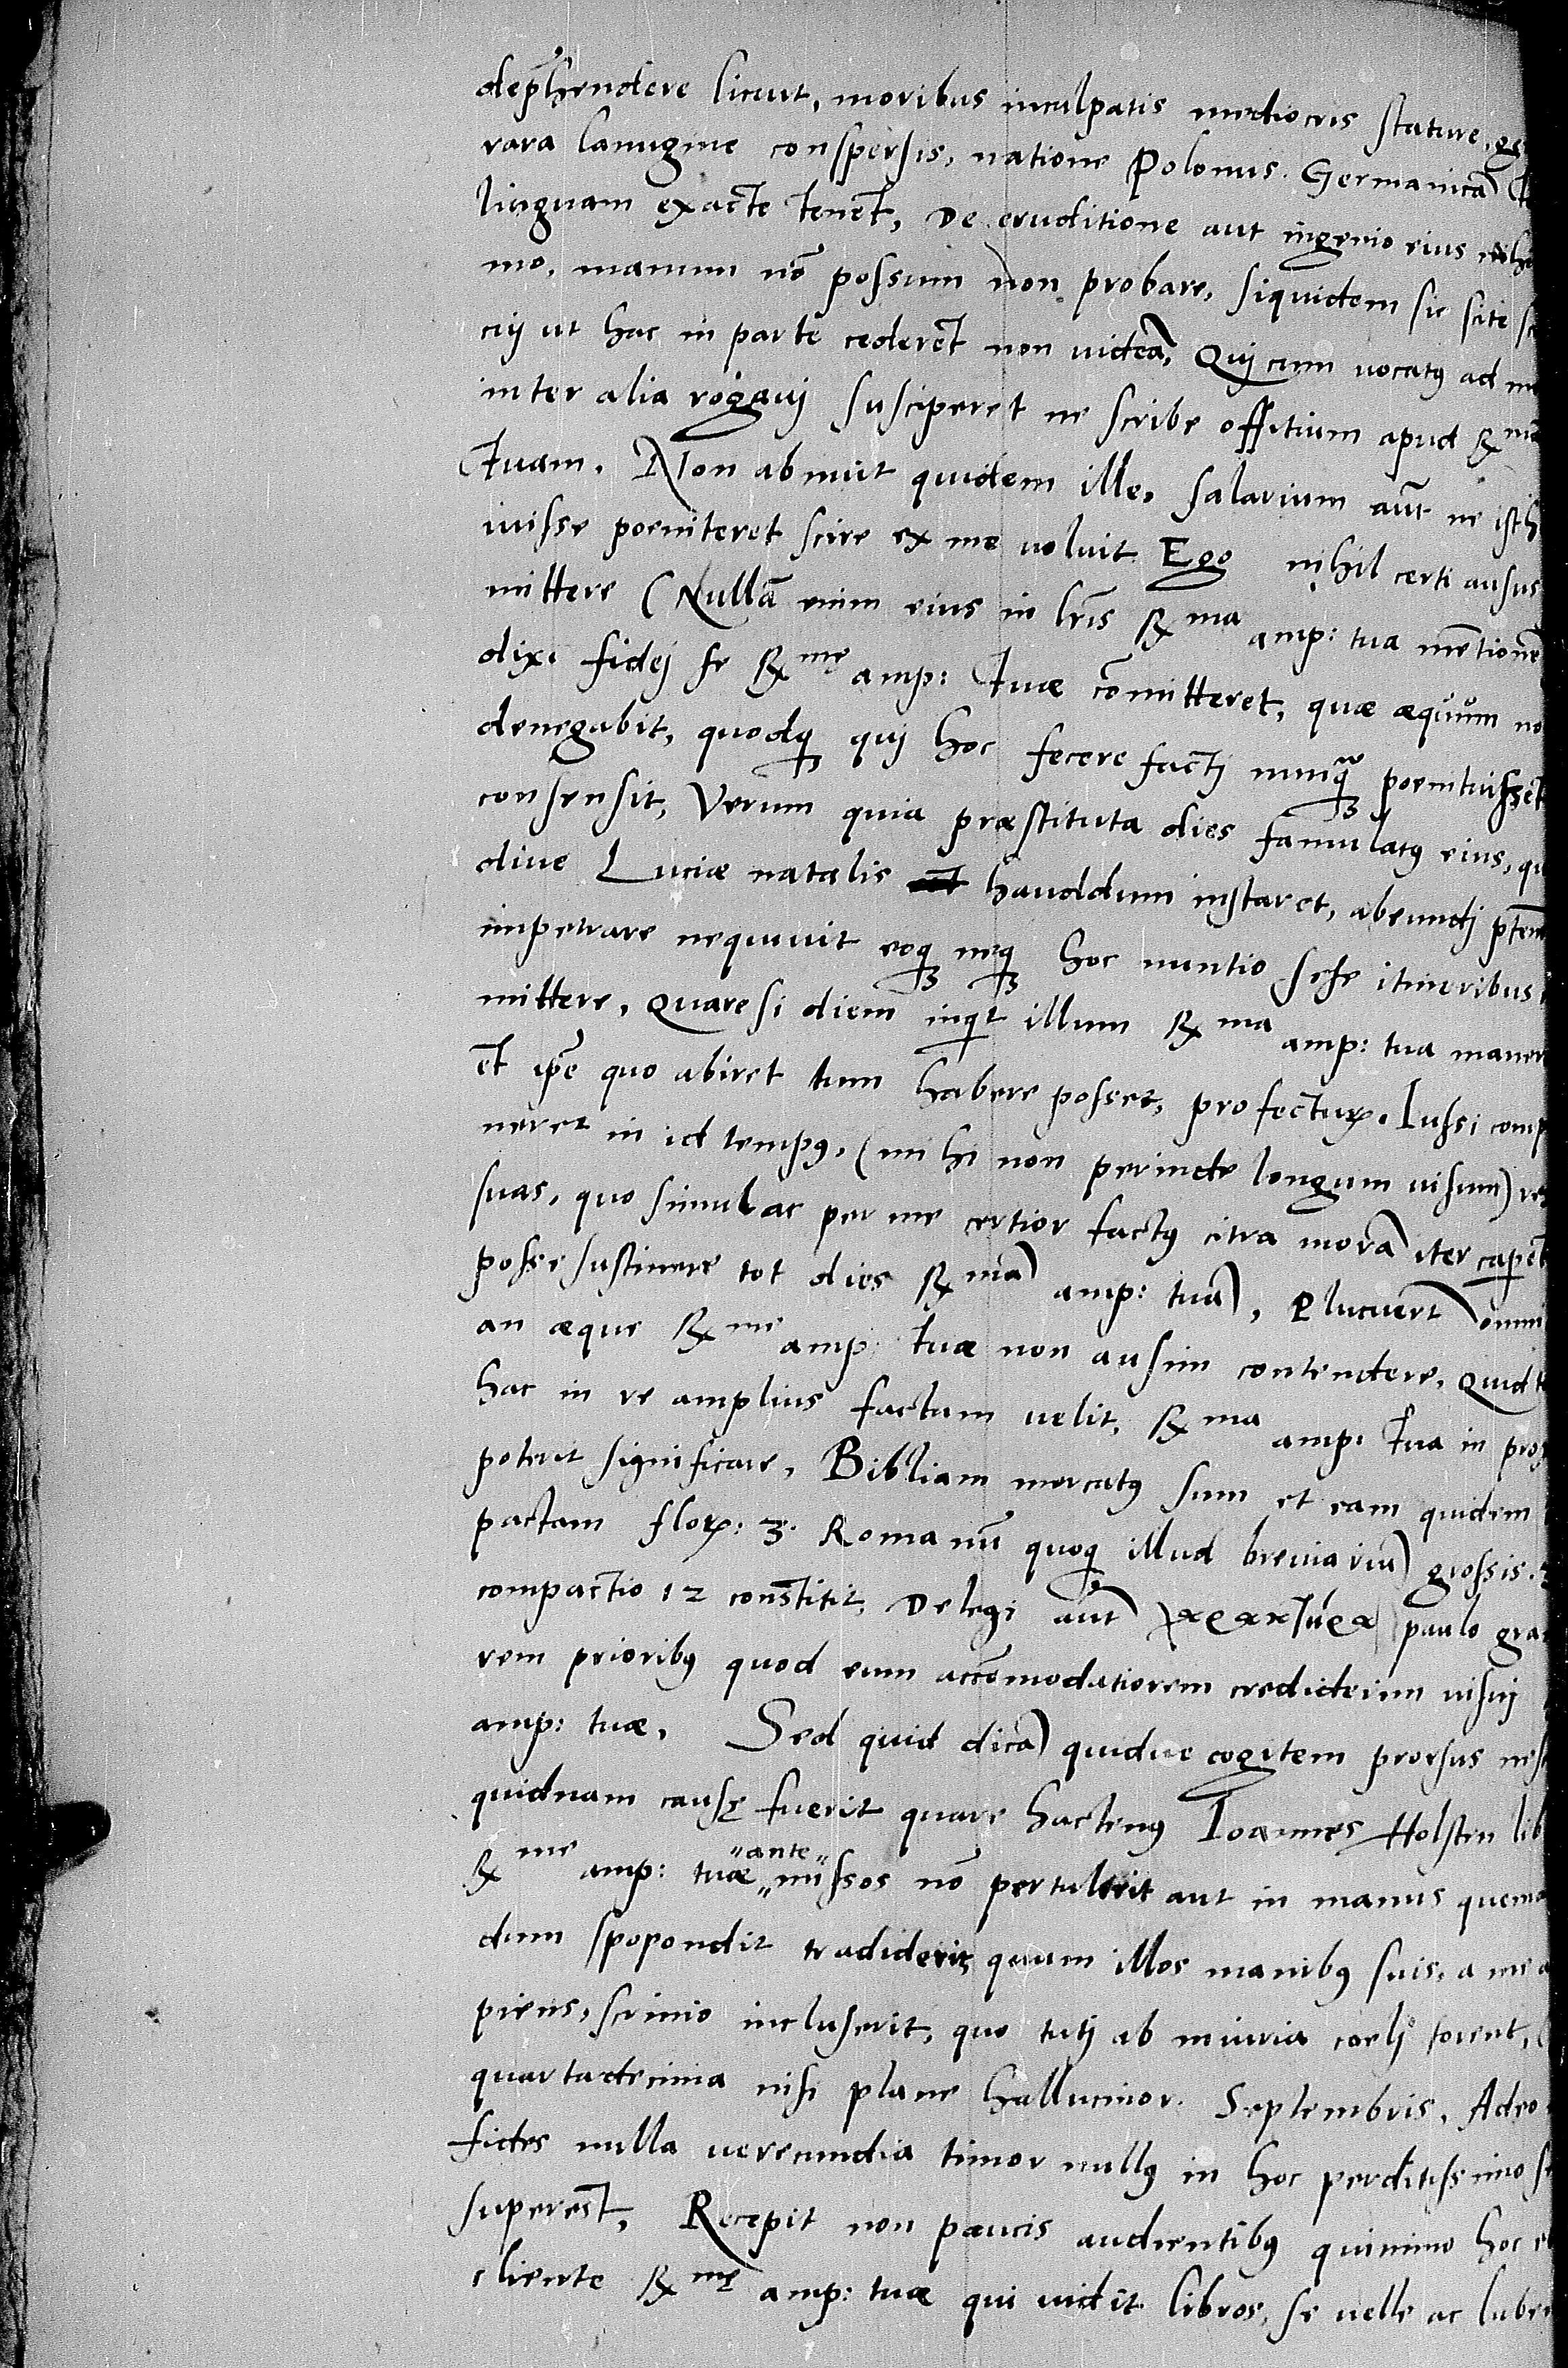 deph̄endere licuit, moribus inculpatis mediocris stature, ge
rara lanugine conspersis, natione Polonus. Germanicā
linguam exacte tenet, De eruditione aut ingenio eius nihi
mo, manum nō possum non probare, siquidem sic scite sc
cij ut hac in parte cederet non videā, Quj cum vocatꝰ ad me
inter alia rogauj susciperet ne scribe offitium apud Rma
Tuam. Non abnuit quidem ille, salarium aūt ne isth
iuisse poeniteret scire ex me voluit. Ego nihil certi ausus
mittere (Nullā enim eius in lr̄is Rma amp: tua mētionē
dixi fidej se Rmę amp: Tuæ cōmitteret, quæ æquum no
denegabit, quodqꝫ quj hoc fecere factj nunqꝫ poenituisset
consensit, Verum quia præstituta dies famulatꝰ eius, qu
diue Luciæ natalis hauddum instaret, abeundj ptem
impetrare nequiuit eoqꝫ neqꝫ hoc nuntio sese itineribus
mittere, Quare si diem inqt illum Rma amp: tua maner
et ip̄e quo abiret tum habere posset, profecturꝰ. Iussi comp
neret in id tempꝰ, (mihi non perinde longum visum) re
suas, quo simulac per me certior factꝰ citra morā iter caperet
posse sustinere tot dies Rmā amp: tuā, Placuerit omni
an æque Rme amp: tuæ non ausim contendere, Quid
hac in re amplius factum velit, Rma amp: Tua in prox
poterit significare, Bibliam mercatꝰ sum et eam quidem
pactam flor: 3. Romanū quoqꝫ illud breuiariū grossis.
compactio 12 constitit, Delegi aūt paulo gra
rem prioribꝰ quod eum accōmodatiorem crediderim visuj
amp: tuæ, Sed quid dicā quidue cogitem prorsus nes
quidnam causę fuerit quare hactenꝰ Ioannes Holsten lib
Rme amp: tuæ "ante" missos nō pertulerit aut in manus quema
dum spopondit tradiderit, quum illos manibꝰ suis, a me a
piens, scrinio incluserit, quo tutj ab iniuria coelj forent,
quartadecima nisi plane hallucinor. Septembris, Adeo
fides nulla verecundia timor nullꝰ in hoc perditissimo se
superest, Recepit non paucis audientibꝰ quinimo hoc e
cliente Rmę amp: tuæ qui vidit libros, se velle ac luben